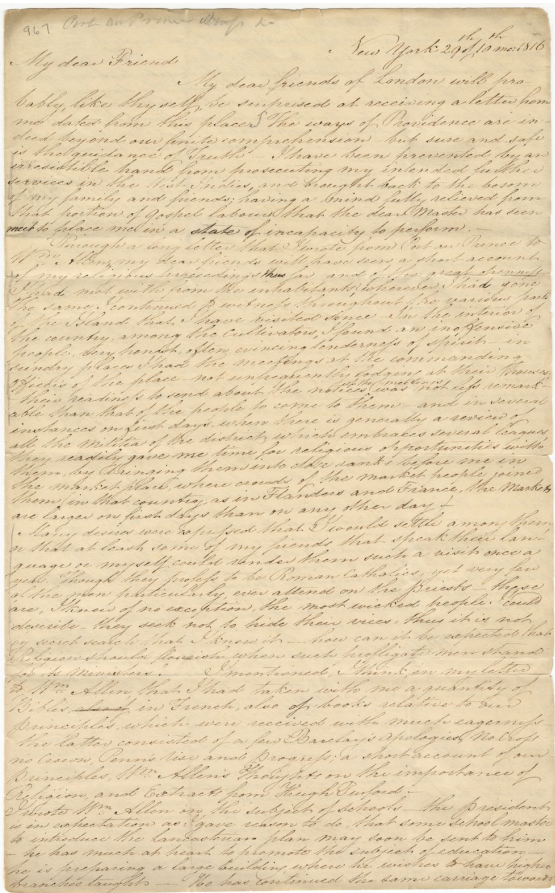 967
New York 29th of 10th mo 1816
My dear Friend
My dear friends of London will pro-
bably, like thyself, be surprised at receiving a letter from
me dated from this place. The ways of Providence are in-
deed beyond our finite comprehension but sure and safe
is the guidance of Truth. I have been prevented by an
irresistible hand from prosecuting my intended further
services in the West Indies, and brought back to the bosom
of my family and friends; having a mind fully relieved from
that portion of Gospel labour that the dear Master has seen
meet to place me in a state of incapacity to perform.
Through a long letter that I wrote from Port au Prince to
Wm Allen, my dear friends will have seen a short account
of my religious proceedings thus far and of the great openness
I had met with from the inhabitants wherever I had gone
the same I continued to witness throughout the various parts
of the Island that I have visited since. In the interior of
the country, among the Cultivators, I found an inoffensive
people, very honest, often evincing tenderness of spirit. in
sundry places I had the meetings at the commanding
officers of the place not unfrequently lodging at their houses
their readiness to send about the notice of the meetings was not less remark-
able than that of the people to come to them and in several
instances on first days, when there is generally a review of
all the militia of the district, which embraces several leagues
they readily gave me time for religious opportunities with
them, by bringing them into close ranks before me in
the market place, where crouds of the market people joined
them, in that country, as in Flanders and France, the Markets
are larger on first days than on any other day.
Many desires were expressed that I would settle among them
or that at least some of my friends that speak their lan-
guage or myself could render them such a visit once a
year. Though they profess to be Roman Catholics, yet very few
of the men particularly, ever attend on the Priests these
are, I know of no exception, the most wicked people I could
describe. they seek not to hide their vices, thus it is not
by secret search that I know it how can it be expected that
Religion should flourish when such profligate men stand
for its Ministers. I mentioned I think in my letter
to Wm Allen that I had taken with me a quantity of
Bibles in French, also of books relative to our
principles which were received with much eagerness
the latter consisted of a few Barclay's Apologies, No Cross
no Crown, Penn's rise and Progress; a short account of our
Principles, Wm Allen's thoughts on the importance of
Religion and Extracts from Hugh Turford;
I wrote Wm Allen on the subject of schools the President
is in expectation as I gave reason to do that some school master
to introduce the lancastrian plan may soon be sent to him
he has much at heart to promote the subject of education
he is preparing a large building where he wishes to have higher
branches taught He has continued the same carriage toward